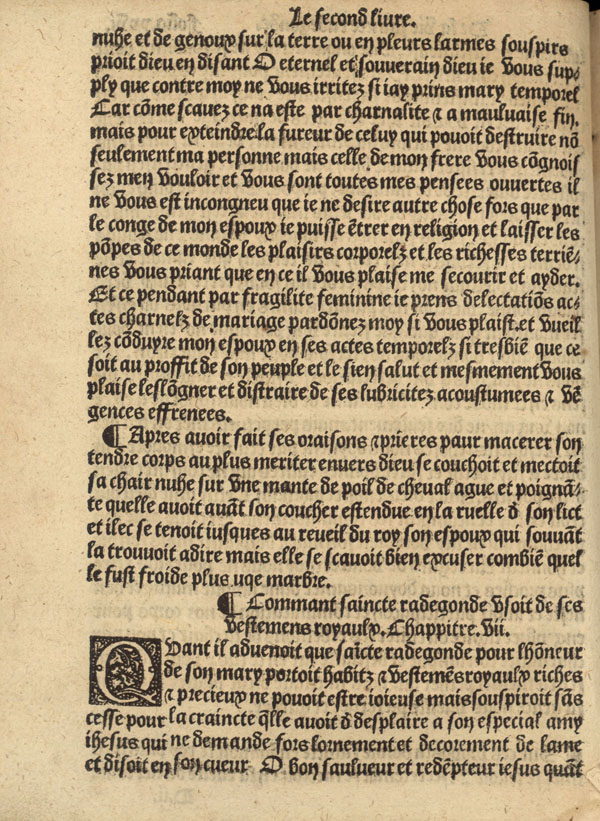 Le second liure.
nuhe et de genoux sur la terre ou en pleurs larmes souspirs
prioit dieu en disant O eternel et souuerain dieu ie vous sup-
ply que contre moy ne vous irritez si iay prins mary temporel
Car cõme scauez ce na este par charnalite ⁊ a maulvaise fin.
mais pour exteindre la fureur de celuy qui pouoit destruire nõ
seulement ma personne mais celle de mon frere vous cõgnois
sez men vouloir et vous sont toutes mes pensees ouvertes il
ne vous est incongneu que ie ne desire autre chose fors que par
le conge de mon espoux ie puisse ẽtrer en religion et laisser les
põpes de ce monde les plaisirs corporelz et les richesses terriẽ-
nes vous priant que en ce il vous plaise me secourir et ayder.
Et ce pendant par fragilite feminine ie prens delectatiõs ac-
tes charnelz de mariage pardõnez moy si vous plaist.et vueil
lez cõduyre mon espoux en ses actes temporelz si tresbiẽ que ce
soit au proffit de son peuple et le sien salut et mesmement vous
plaise leslõgner et distraire de ses lubricitez acoustumees ⁊ vẽ
gences effrenees.
¶ Apres avoir fait ses oraisons ⁊ prieres paur macerer son
tendre corps au plus meriter envers dieu se couchoit et mectoit
sa chair nuhe sur vne mante de poil de cheval ague et poignã-
te quelle avoit avãt son coucher estendue en la ruelle d son lict
et ilec se tenoit iusques au reueil du roy son espoux qui souuãt
la trouvoit adire mais elle se scavoit bien excuser combiẽ quel
le fust froide plus uqe marbre.
¶ Commant saincte radegonde vsoit de ses
vestemens royaulx. Chappitre. vii.
QVant il advenoit que saĩcte radegonde pour lhõneur
de son mary portoit habitz ⁊ vestemẽs royaulx riches
⁊ precieux ne pouoit estre ioieuse mais souspiroit sãs
cesse pour la craincte qlle avoit d desplaire a son especial amy
ihesus qui ne demande fors lornement et decorement de lame
et disoit en son cueur O bon saulueur et redẽpteur iesus quãt